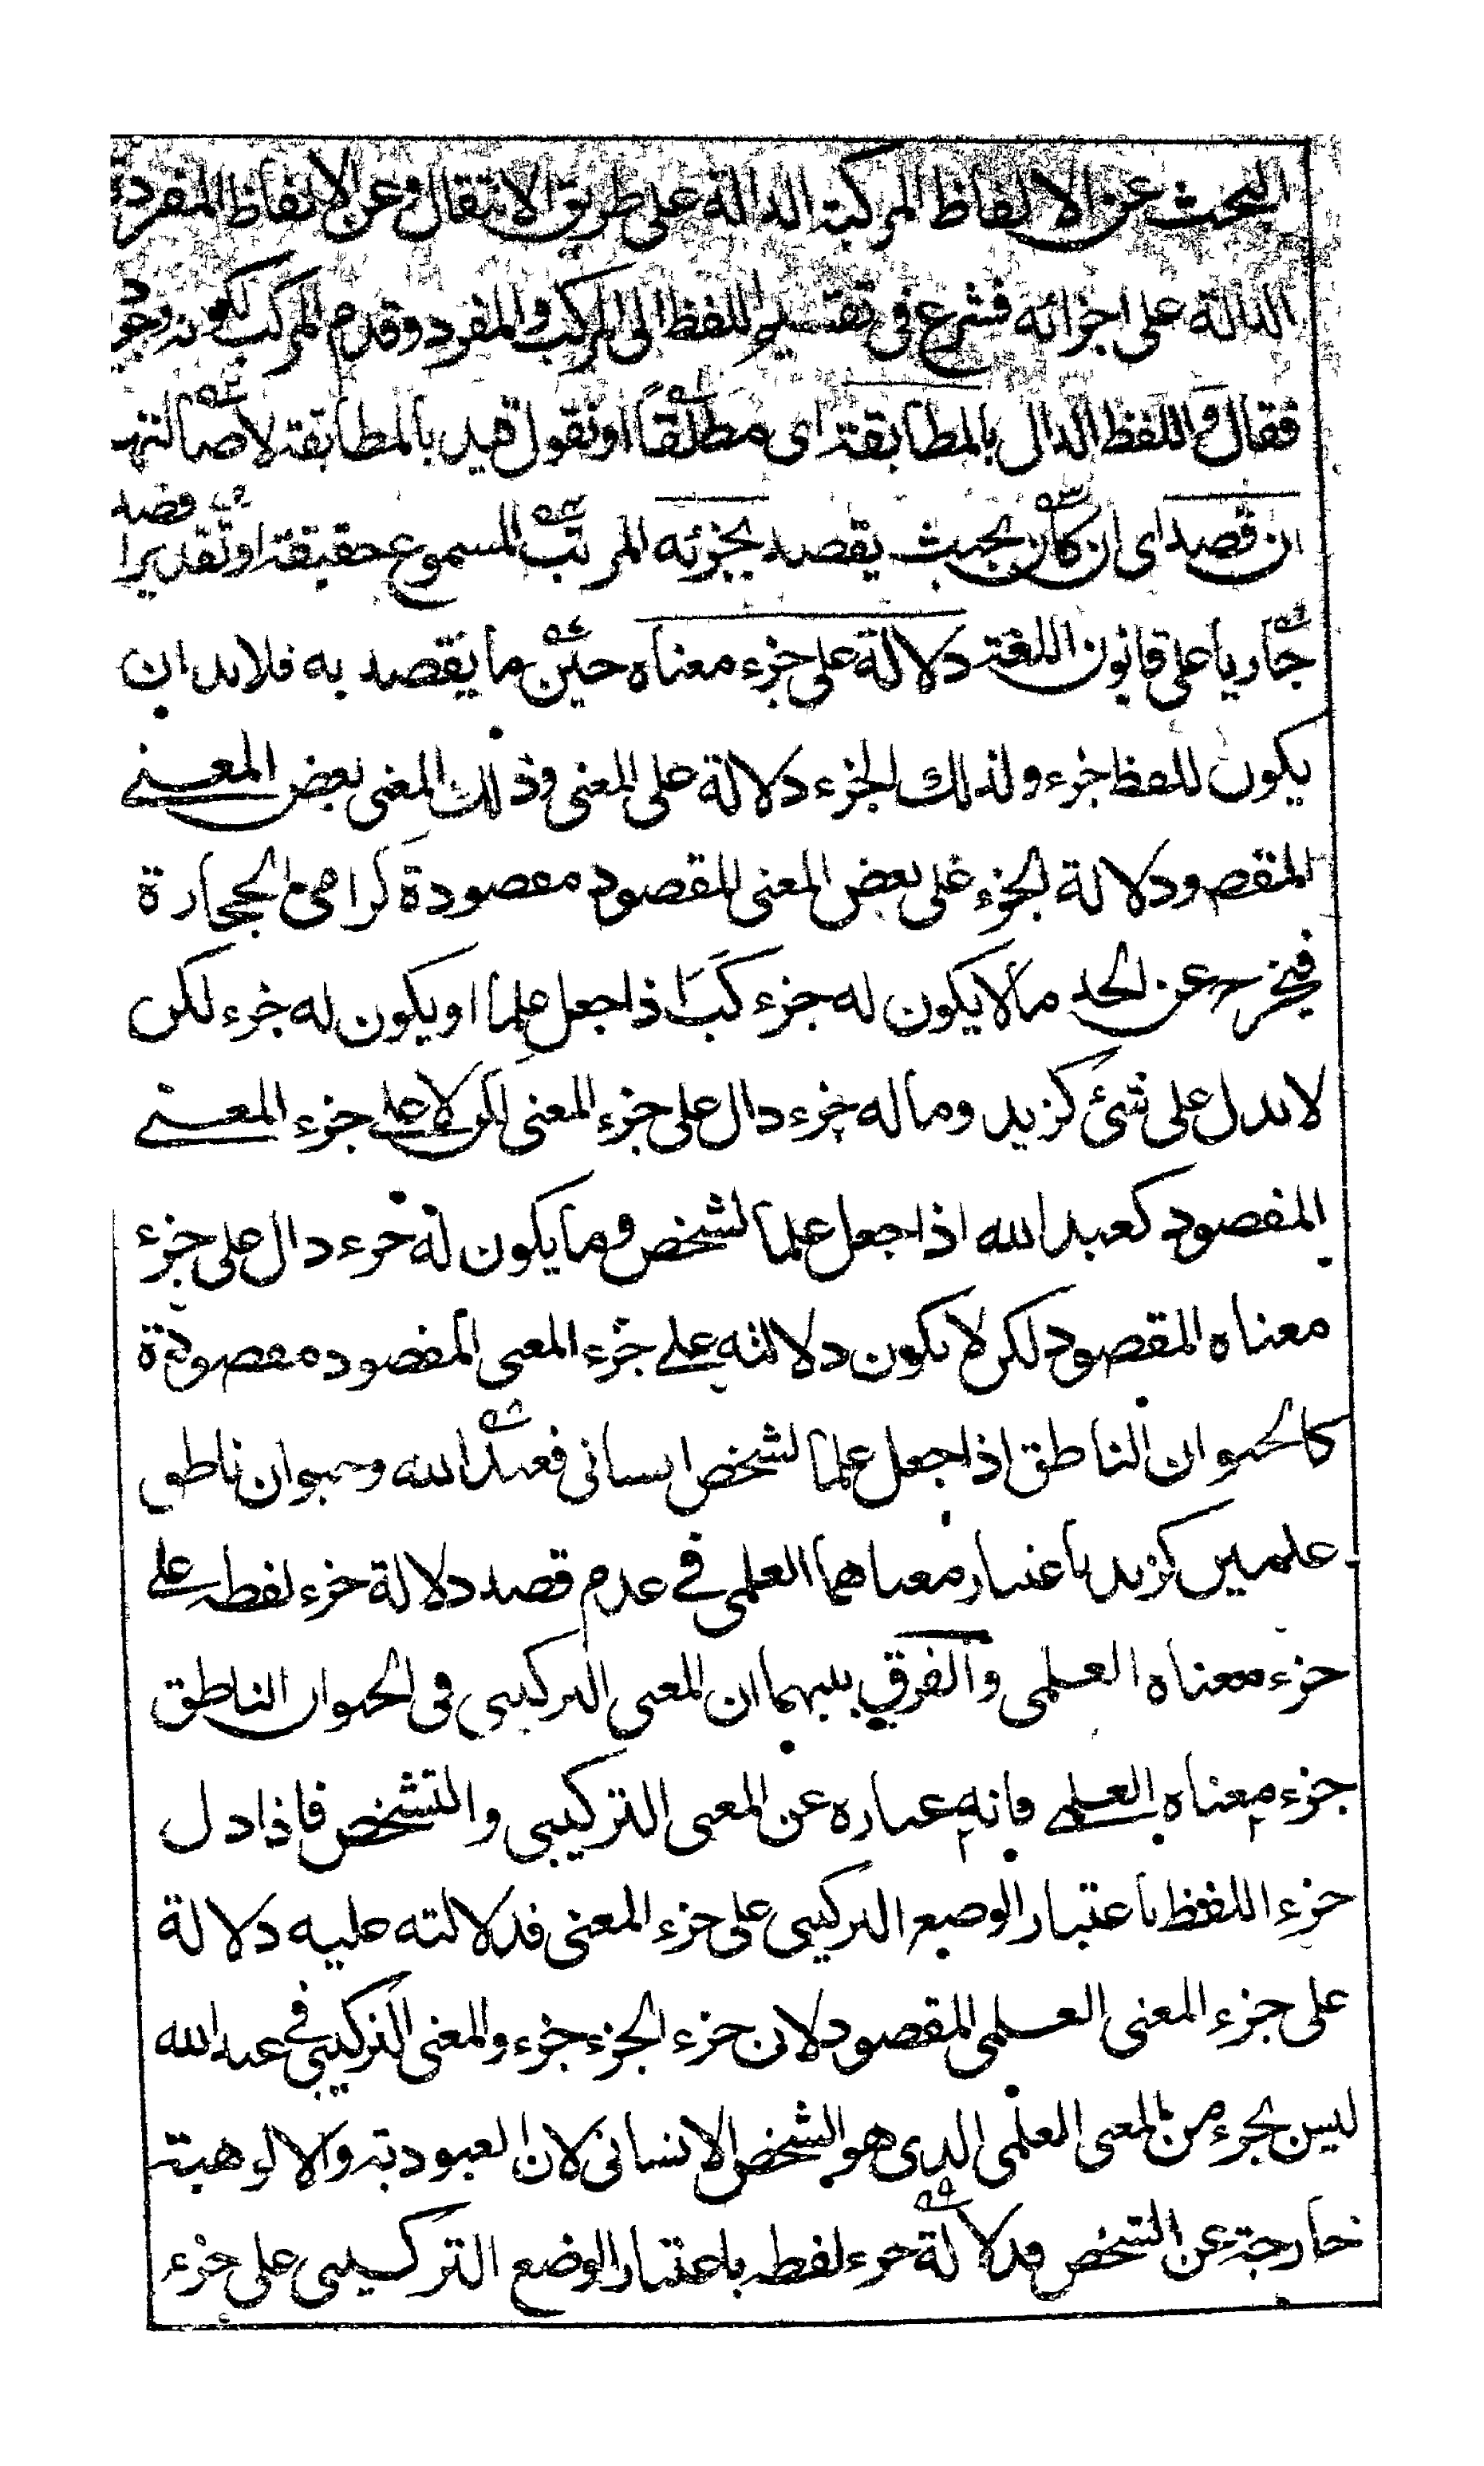 البحث عن الالفاظ المركبة الدالة على طريق الانتقال وعن الالفاظ المفردة
الدالة على اجزائه فشرع فى تقسيم اللفظ الى المركب والمفرد وقدم المركب لكونه وجود
فقال واللفظ الدال بالمطابقة اى مطلقاً او نقول قيد بالمطابقة لاصالتها
ان قصد اى ان كان بحيث يقصد بجزئه المرتب المسموع حقيقة او تقديرا قصد
جاريا على قانون اللغة دلالة على جزء معناه حين ما يقصد به فلابد ان
يكون للفظ جزء ولذلك الجزء دلالة على المعنى وذلك المعنى بعض المعنى
المقصود ودلالة الجزء على بعض المعنى المقصود مقصودة كرامى الحجارة
فيخرج عن الحد ما لا يكون له جزء كبَ اذا جعل علما او يكون له جزء لكن
لا يدل على شئ كزيد وما له جزء دال على جزء المعنى لكن لا على جزء المعنى
المقصود كعبد الله اذا جعل علما لشخص وما يكون له جزء دال على جزء
معناه المقصود لكن لا يكون دلالته على جزء المعنى المقصود مقصودة
كالحيوان الناطق اذا جعل علما لشخص انسانى فعبد الله وحيوان ناطق
علمين كزيد باعتبار معناهما العلمى فى عدم قصد دلالة جزء لفظه على
جزء معناه العلمى والفرق بينهما ان المعنى التركيبى فى الحيوان الناطق
جزء معناه العلمى فانه عبارة عن المعنى التركيبى والتشخص فاذا دل
جزء اللفظ باعتبار الوضع التركيبى على جزء المعنى فدلالته عليه دلالة
على جزء المعنى العلمى المقصود لان جزء الجزء جزء والمعنى التركيبى فى عبد الله
ليس بجزء من المعنى العلمى الذى هو الشخص الانسانى لان العبودية والالوهية
خارجة عن التشخص فدلالة جزء لفظه باعتبار الوضع التركيبى على جزء